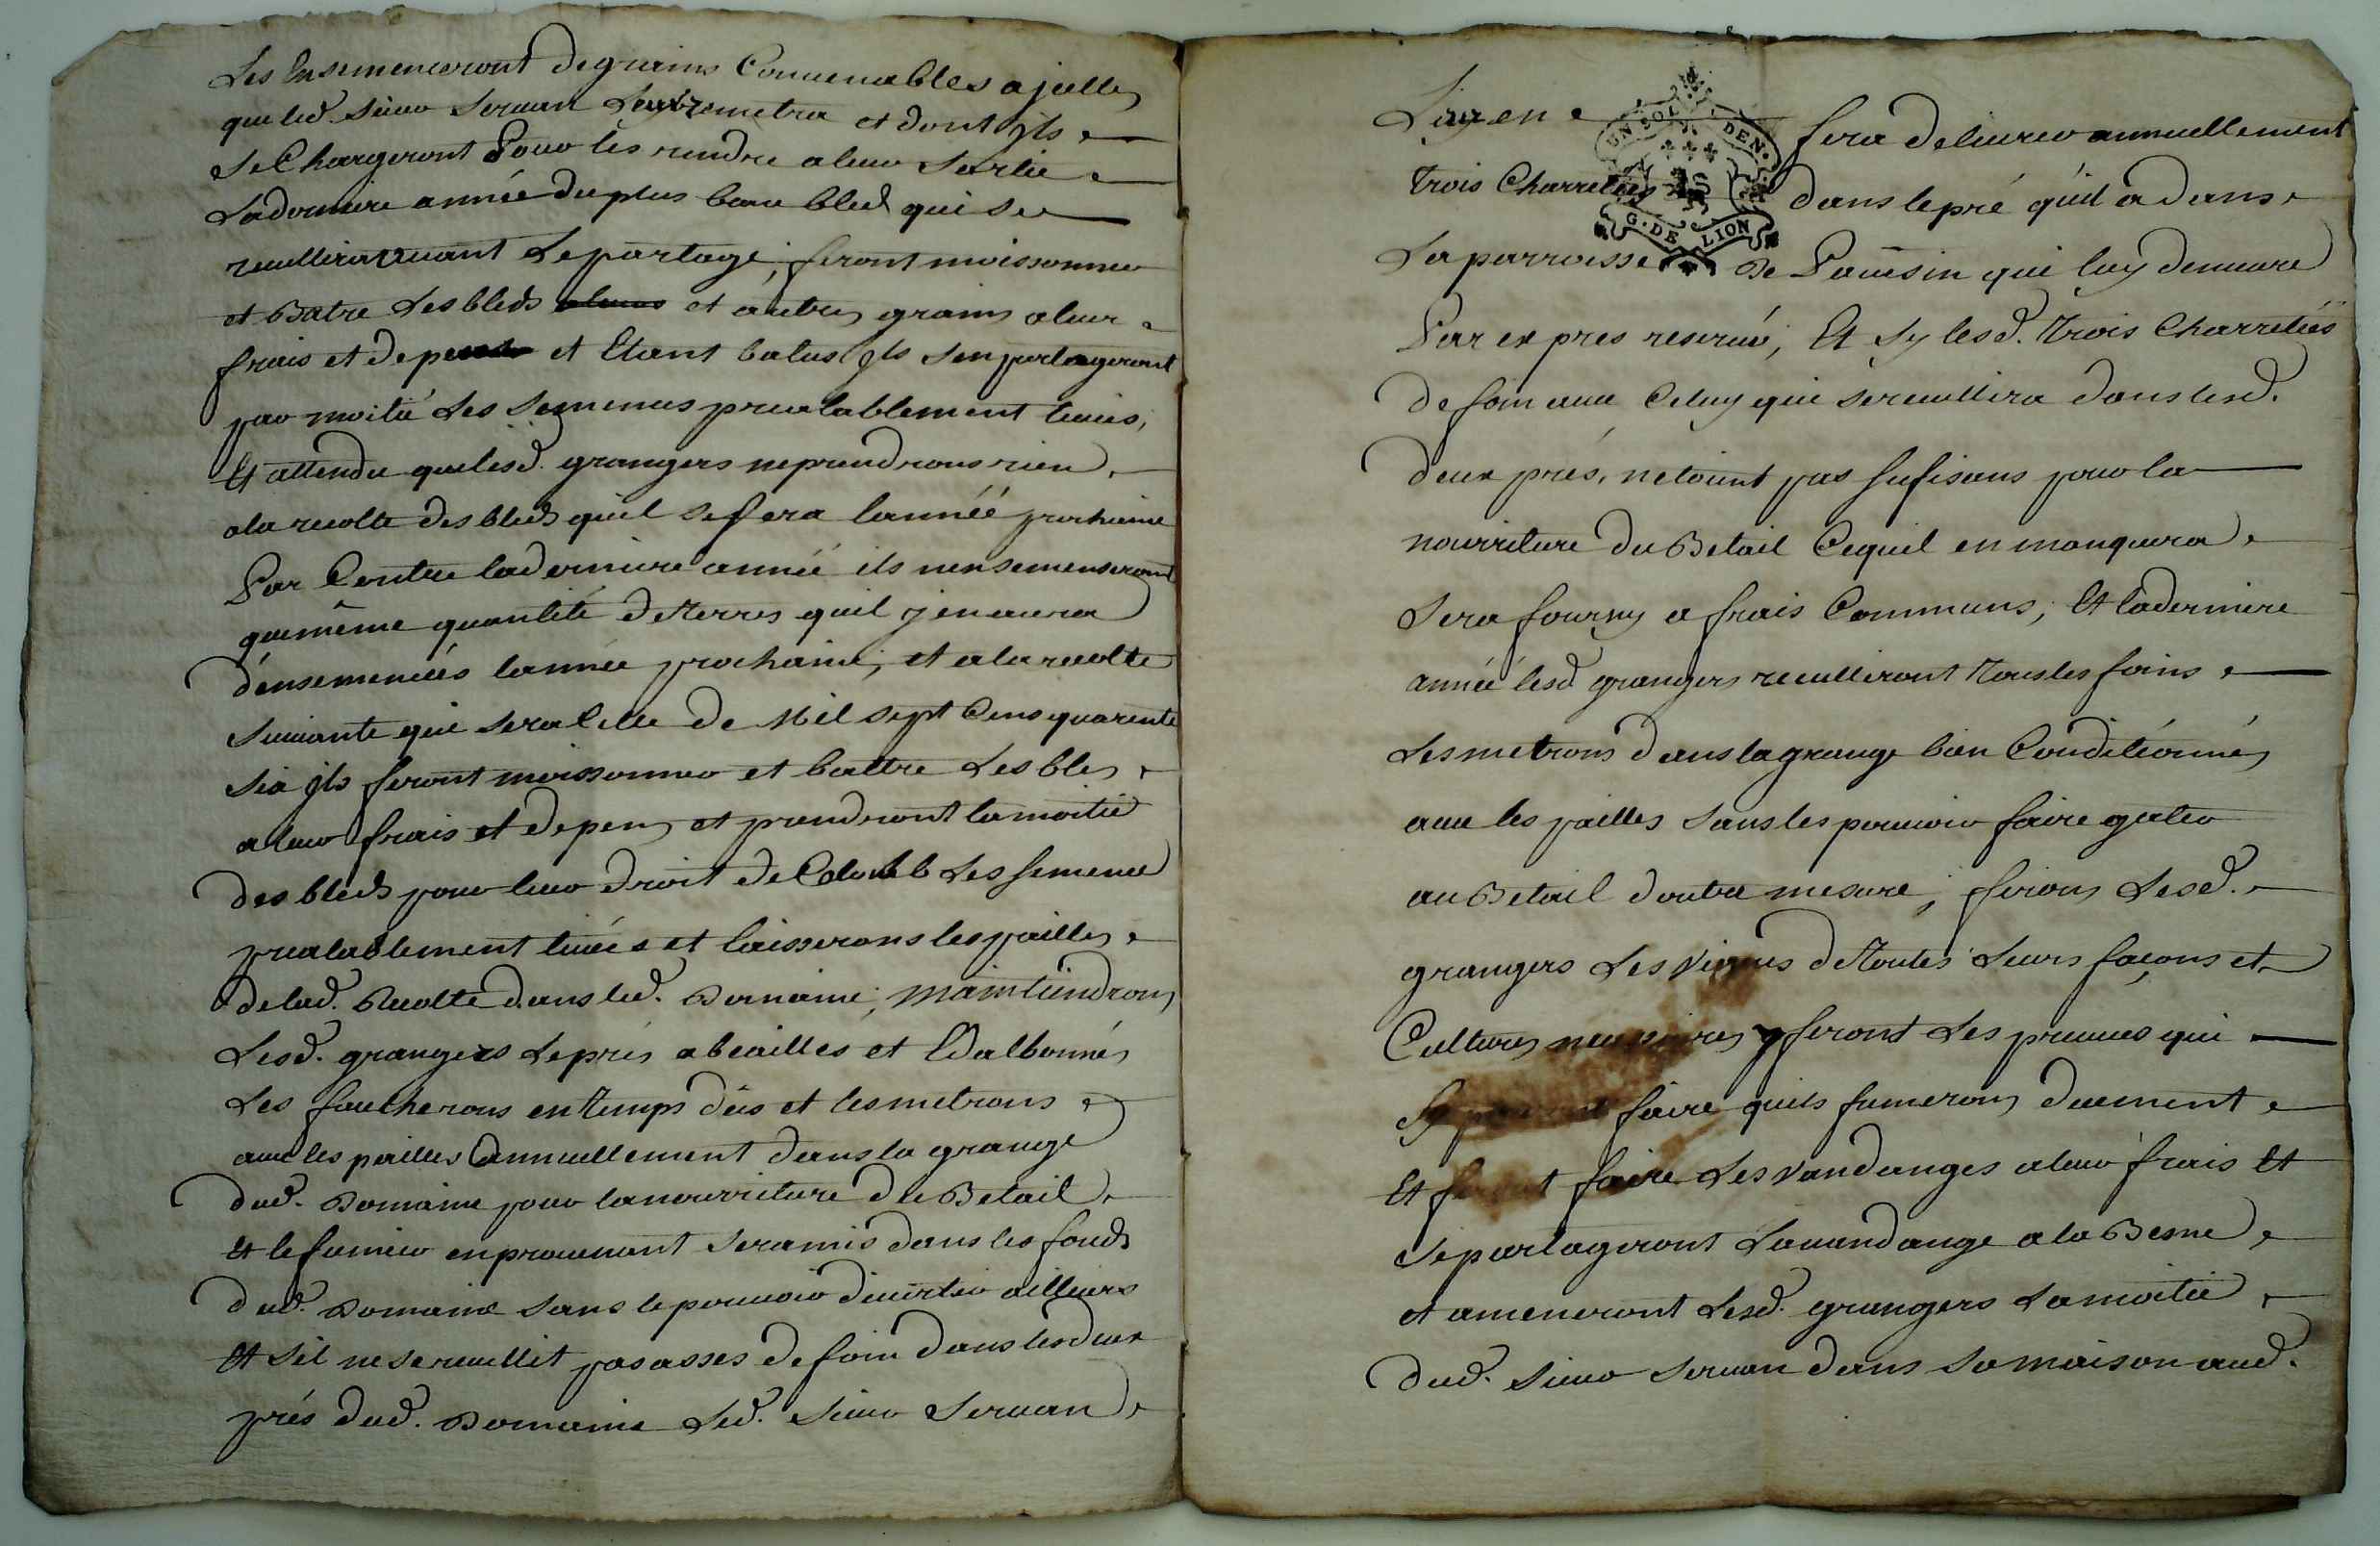 Les Ensemenceront de grains Conuenables a jcelles
que led. sieur Seruan leur remetra et dont jls
se Chargeront Pour les rendre a leur Sortie
La derniere année du plus beau bled qui se
recullira auant le partage, feront moissonner
et Batre Les bleds et autres grains a leur
frais et depens et Etant batus jls s'en partageront
par moitié Les Semences prealablement leuées,
Et attendu que lesd. grangers ne prendrons rien
a la recolte des bleds quil se fera lannéé prochaine
Par Contre la derniere année ils nensemenseront
que même quantité de terres quil y en aura
d'ensemencées lannée prochaine, et a la recolte
suiuante qui sera Celle de Mil sept Cens quarente
six jls feront moissonner et battre Les bles
a leur frais et depens et prendront la moitié
des bleds pour leur droit de Les semences
prealablement leuées et laisserons les pailles
de lad. Recolte dans led. Domaine; Maintiendrons
Lesd. grangers Le prés abeaillés et Ealbonnés
Les faucherons en temps dus et les metrons
auec les pailles annuellement dans la grange
dud. Domaine pour la nourriture du Betail
Et le fumier en prouenant sera mis dans les fonds
dud. Domaine sans le pouuoir diuertir ailleurs
Et s'il ne se recullit pas asses de foin dans les deux
prés dud. Domaine Led. Sieur Seruan
Leur en fera deliurer annuellement
UN SOL DEN.
trois Charretées dans le pré qu'il a dans
G. DE LION
La parroisse de Pouisin qui luy demeure
Par expres reserué, Et sy lesd. trois Charretées
de foin auec Celuy qui se recullira dans lesd.
deux prés, netoient pas sufisans pour la
nourriture du Betail Ce quil en manquera
Sera fourny a frais Communs; Et la derniere
année lesd grangers reculliront tous les foins
Les metrons dans la grange bien Conditionnés
auec les pailles sans les pouuoir faire gater
au Betail doutre mesure; ferons Lesd.
grangers Les vignes de toutes Leurs façons et
Cultures necessaires y feront Les preuues qui
Sy pourront faire quils fumerons duement
Et feront faire Les vandanges a leur frais Et
se partageront La uandange a la Besne
et ameneront Lesd. grangers La moitié
dud. Sieur Seruan dans Sa maison aud.